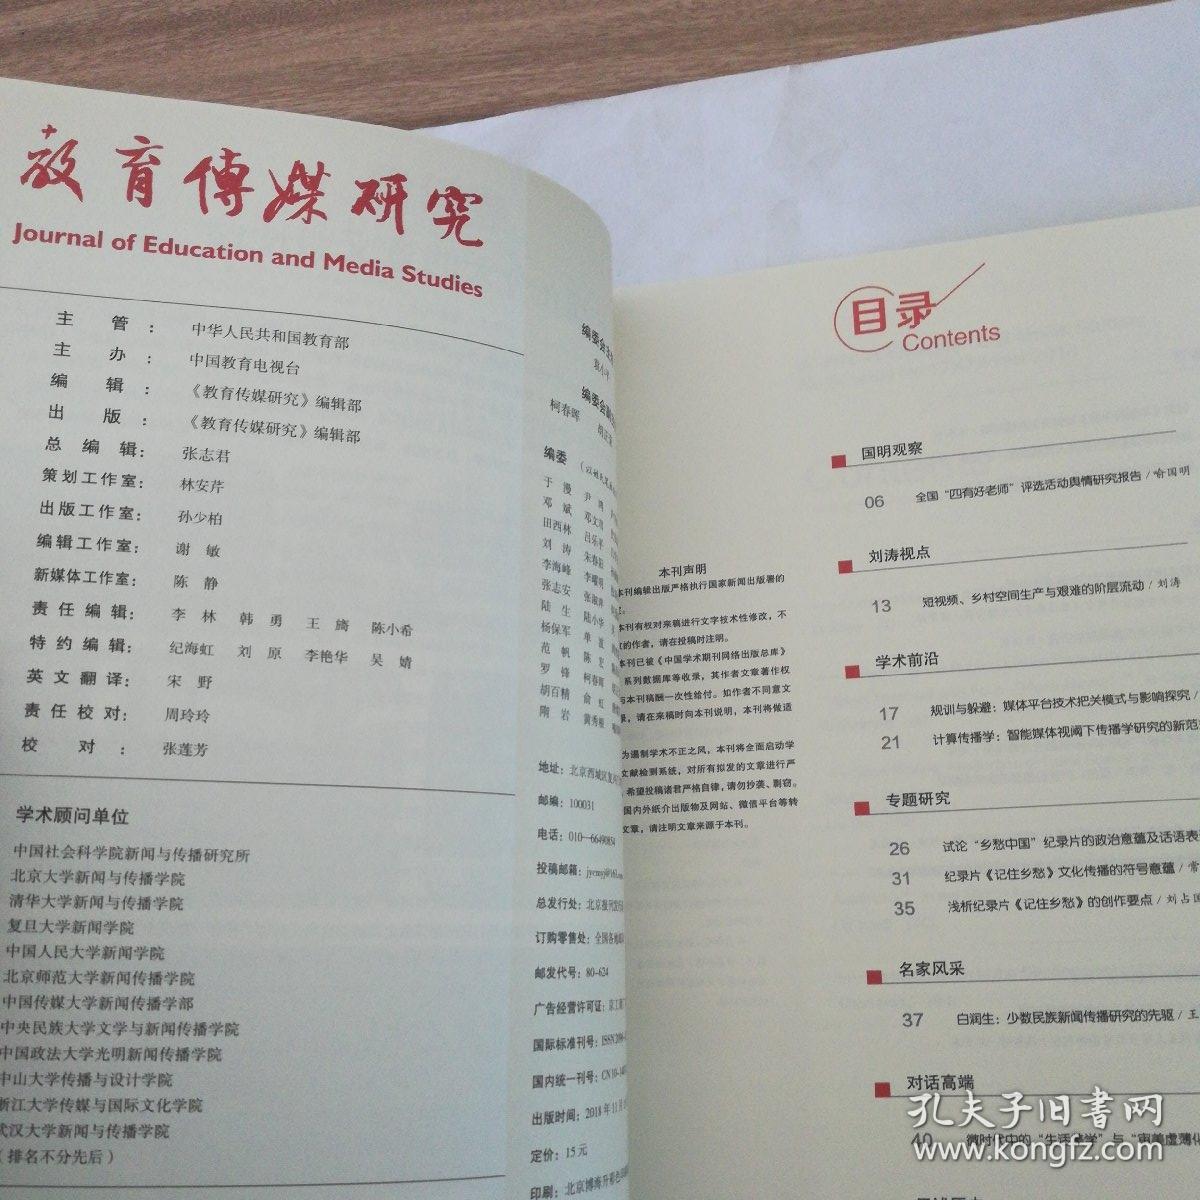 教育傳媒研究
Journal of Education and Media Studies
主 管： 中华人民共和国教育部
主 办： 中国教育电视台
编 辑： 《教育传媒研究》编辑部
出 版： 《教育传媒研究》编辑部
总 编 辑： 张志君
策划工作室： 林安芹
出版工作室： 孙少柏
编辑工作室： 谢 敏
新媒体工作室： 陈 静
责 任 编 辑： 李 林 韩 勇 王 旖 陈小希
特 约 编 辑： 纪海虹 刘 原 李艳华 吴 婧
英 文 翻 译： 宋 野
责 任 校 对： 周玲玲
校 对： 张莲芳
学术顾问单位
中国社会科学院新闻与传播研究所
北京大学新闻与传播学院
清华大学新闻与传播学院
复旦大学新闻学院
中国人民大学新闻学院
北京师范大学新闻传播学院
中国传媒大学新闻传播学部
中央民族大学文学与新闻传播学院
中国政法大学光明新闻传播学院
中山大学传播与设计学院
浙江大学传媒与国际文化学院
武汉大学新闻与传播学院
（排名不分先后）
编委会主
袁小平
编委会副
柯春晖
编委
于 漫 尹 鸿
邓 斌 邓文
田西林 吕乐平
刘 涛 朱春阳
李海峰 李曜明
张志安 张淑
陆 生 陆小华
杨保军 单 波
范 帆 陈 宏
罗 锋 柯春晖
胡百精 俞 虹
隋 岩 黄秀
地址：北京西城区复
邮编：100031
电话：010—66490854
投稿邮箱：jycmyj@163.com
总发行处：北京报刊发
订购零售处：全国各地邮
邮发代号：80-624
广告经营许可证：京工商
国际标准刊号：ISSN
国内统一刊号：CN10-
出版时间：2018年11月
定价：15元
印刷：北京博海升彩色
本刊声明
本刊编辑出版严格执行国家新闻出版署的
本刊有权对来稿进行文字技术性修改，不
的作者，请在投稿时注明。
本刊已被《中国学术期刊网络出版总库》
系列数据库等收录，其作者文章著作权
与本刊稿酬一次性给付。如作者不同意文
录，请在来稿时向本刊说明，本刊将做适
为遏制学术不正之风，本刊将全面启动学
文献检测系统，对所有拟发的文章进行严
希望投稿诸君严格自律，请勿抄袭、剽窃。
国内外纸介出版物及网站、微信平台等转
文章，请注明文章来源于本刊。
目录
Contents
国明观察
06 全国“四有好老师”评选活动舆情研究报告/喻国明
刘涛视点
13 短视频、乡村空间生产与艰难的阶层流动/刘涛
学术前沿
17 规训与躲避：媒体平台技术把关模式与影响探究/
21 计算传播学：智能媒体视阈下传播学研究的新范
专题研究
26 试论“乡愁中国”纪录片的政治意蕴及话语表
31 纪录片《记住乡愁》文化传播的符号意蕴/常
35 浅析纪录片《记住乡愁》的创作要点/刘占国
名家风采
37 白润生：少数民族新闻传播研究的先驱/王
对话高端
40 微时代中的“生活美学”与“审美虚薄化
孔夫子旧书网
www.kongfz.com